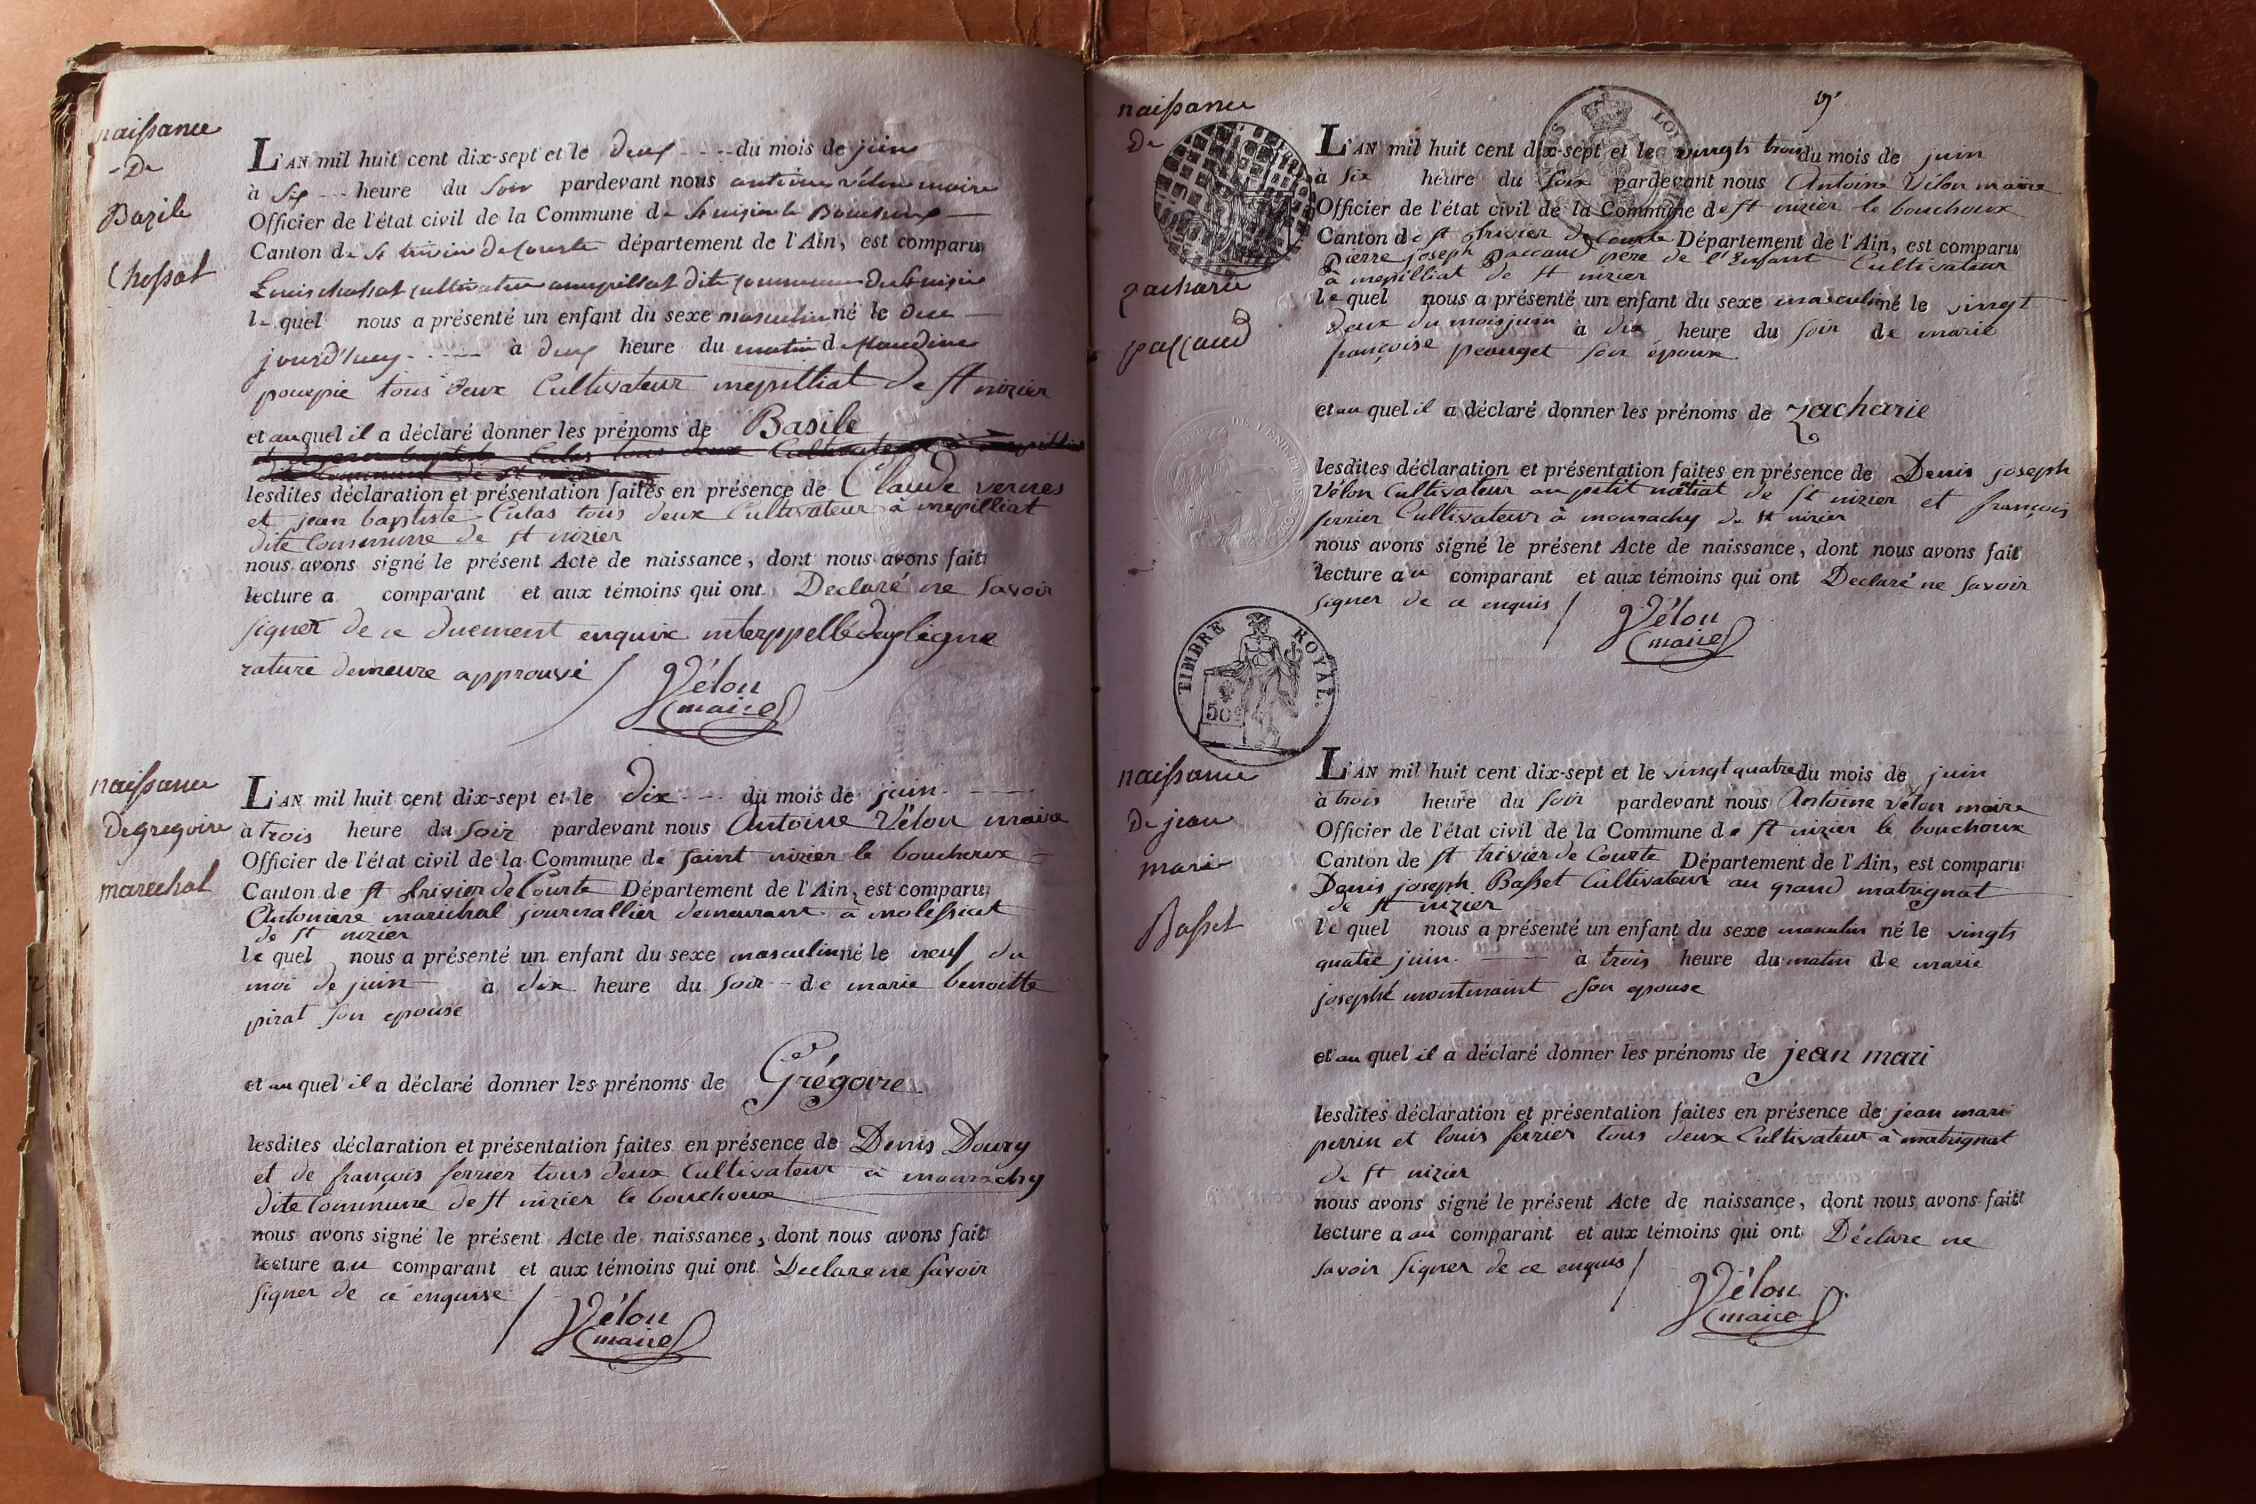 naissance
De
Bazile
Chossat
L'AN mil huit cent dix-sept et le deux du mois de juin
à six heure du soir pardevant nous antoine vélon maire
Officier de l'état civil de la Commune de
Canton de St trivier De Courte département de l'Ain, est comparu
cultivateur dite commune
le quel nous a présenté un enfant du sexe masculin né le deux
jourd'huy à deux heure du matin de Claudine
tous deux Cultivateur mepilliat de st nizier
et au quel il a déclaré donner les prénoms de Basile
lesdites déclaration et présentation faites en présence de Claude vernes
et jean baptiste Culas tous deux Cultivateur à mepilliat
dite Commune de st nizier
nous avons signé le présent Acte de naissance, dont nous avons fait
lecture a comparant et aux témoins qui ont Declaré ne savoir
signer de ce duement enquix ligne
rature demeure approuvé
Vélon
maire
naissance
De gregoire
marechal
L'AN mil huit cent dix-sept et le dix du mois de juin
à trois heure du soir pardevant nous Antoine Vélon maire
Officier de l'état civil de la Commune de saint nizier le bouchoux
Canton de st trivier de Courte Département de l'Ain, est comparu
maréchal journallier demeurant à
de st nizier
le quel nous a présenté un enfant du sexe masculin né le neuf du
moi de juin à dix heure du soir de marie benoitte
pirat son epouse
et au quel il a déclaré donner les prénoms de Grégoire
lesdites déclaration et présentation faites en présence de Denis Doury
et de françois ferrier tous deux Cultivateur à mourachy
dite Commune de st nizier le bouchoux
nous avons signé le présent Acte de naissance, dont nous avons fait
lecture au comparant et aux témoins qui ont Declare ne savoir
signer de ce enquise
Vélon
maire
naissance
De
zacharie
paccaud
L'AN mil huit cent dix-sept et le vingts trois du mois de juin
à six heure du soir pardevant nous Antoine Vélon maire
Officier de l'état civil de la Commune de st nizier le bouchoux
Canton de st trivier de Courte Département de l'Ain, est comparu
pierre joseph paccaud père de l'Enfant Cultivateur
à mepilliat de st nizier
le quel nous a présenté un enfant du sexe masculin né le vingt
deux du mois juin à dix heure du soir de marie
françoise peauget son épouse
et au quel il a déclaré donner les prénoms de zacharie
lesdites déclaration et présentation faites en présence de Denis joseph
Vélon Cultivateur au petit de st nizier et françois
ferrier Cultivateur à mourachy de st nizier
nous avons signé le présent Acte de naissance, dont nous avons fait
lecture au comparant et aux témoins qui ont Declaré ne savoir
signer de ce enquis
Vélon
maire
TIMBRE ROYAL.
50c
naissance
De jean
marie
Basset
L'AN mil huit cent dix-sept et le vingt quatre du mois de juin
à trois heure du soir pardevant nous Antoine Vélon maire
Officier de l'état civil de la Commune de st nizier le bouchoux
Canton de st trivier de Courte Département de l'Ain, est comparu
Denis joseph Basset Cultivateur au grand matrignat
de st nizier
le quel nous a présenté un enfant du sexe masculin né le vingts
quatre juin à trois heure du matin de marie
josephe son epouse
et au quel il a déclaré donner les prénoms de jean mari
lesdites déclaration et présentation faites en présence de jean mari
perrin et louis ferrier tous deux Cultivateur à matrignat
de st nizier
nous avons signé le présent Acte de naissance, dont nous avons fait
lecture a au comparant et aux témoins qui ont Déclare ne
savoir signer de ce enquis
Vélon
maire